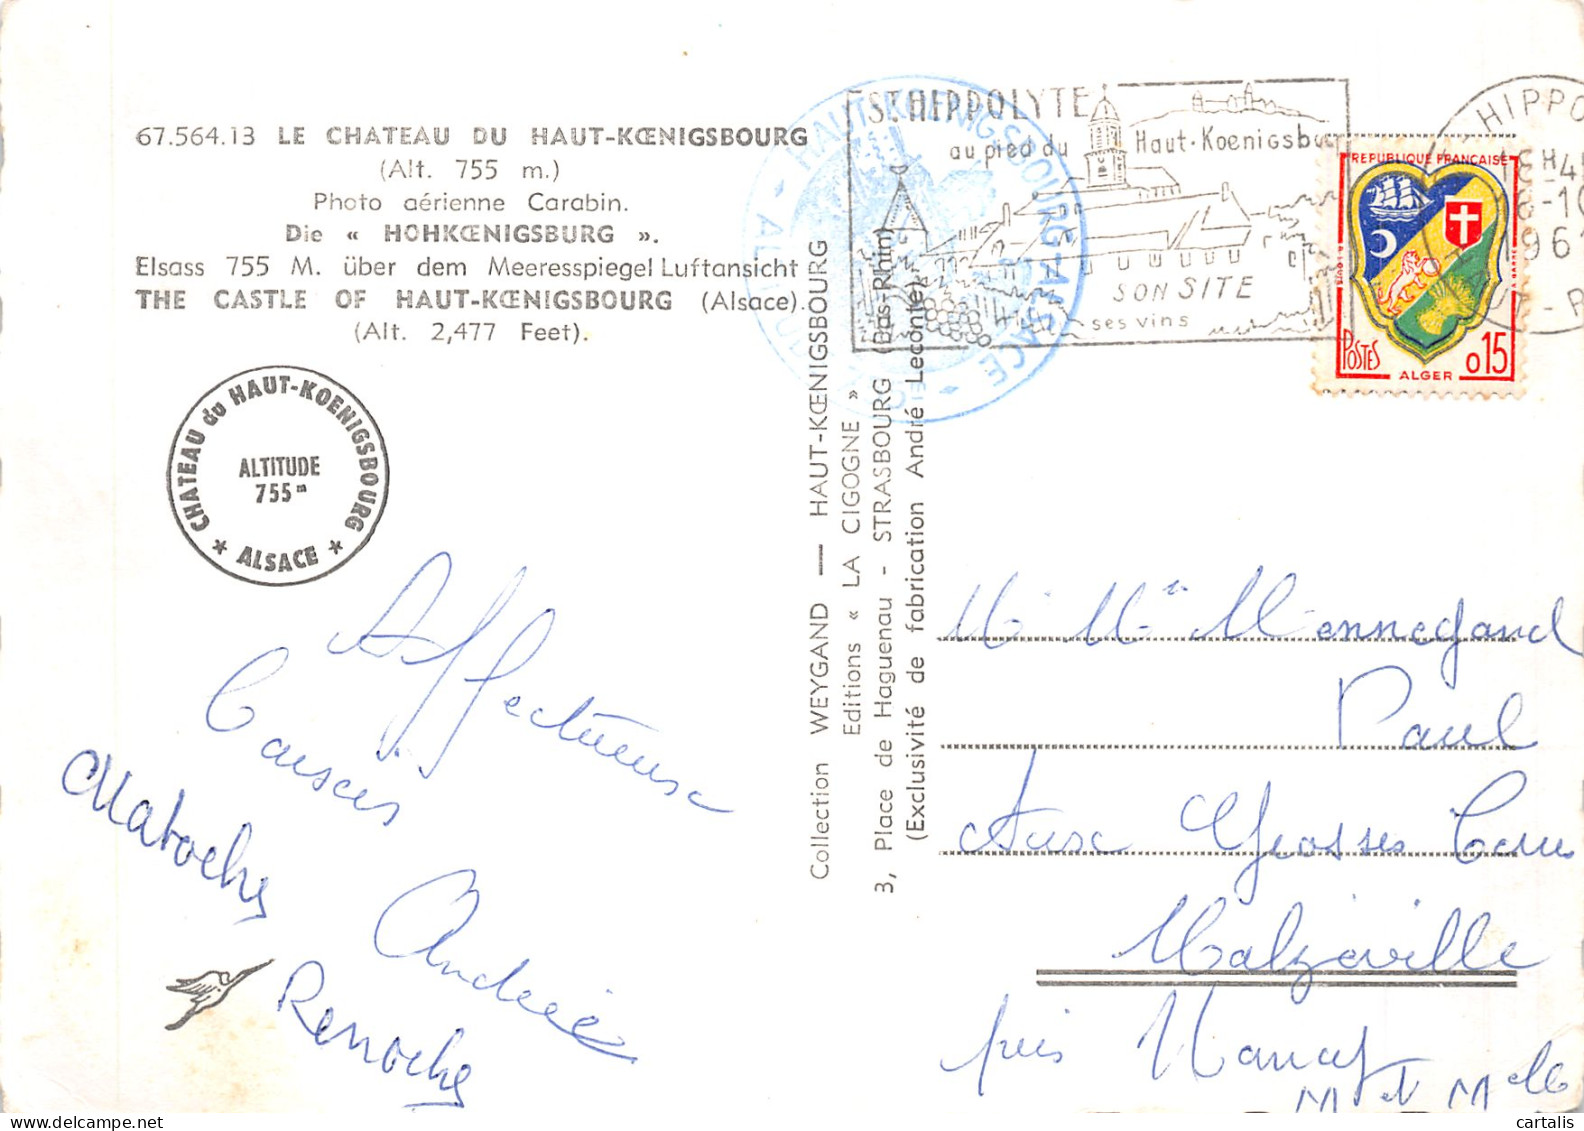 67.564.13 LE CHATEAU DU HAUT-KŒNIGSBOURG
(Alt. 755 m.)
Photo aérienne Carabin.
Die « HOHKŒNIGSBURG ».
Elsass 755 M. über dem Meeresspiegel Luftansicht
THE CASTLE OF HAUT-KŒNIGSBOURG (Alsace).
(Alt. 2,477 Feet).
CHATEAU du HAUT-KOENIGSBOURG
ALTITUDE
755m
* ALSACE *
Affectueux
Baisers
Andrée
Collection WEYGAND — HAUT-KŒNIGSBOURG
Editions « LA CIGOGNE »
3, Place de Haguenau - STRASBOURG (Bas-Rhin)
(Exclusivité de fabrication André Leconte)
HAUT-KOENIGSBOURG-ALSACE
ST.HIPPOLYTE
au pied du Haut-Koenigsbourg
SON SITE
ses vins
HIPPO
196
REPUBLIQUE FRANÇAISE
POSTES
ALGER
0,15
M. Mme Mennegand
Paul
Aux Grosses
Malzéville
près Nancy
M et Melle
cartalis